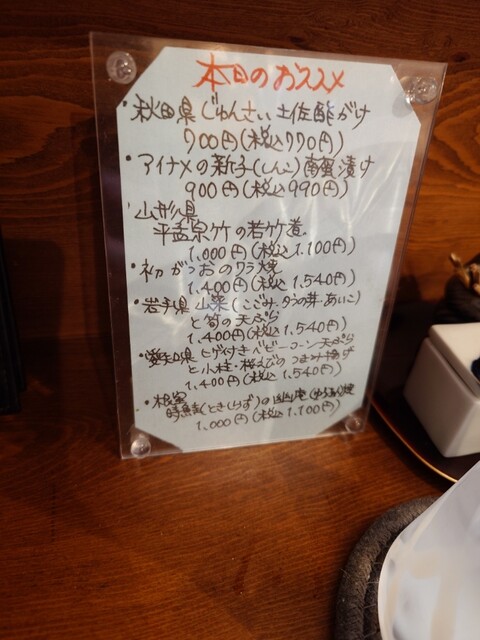 本日のおススメ
・秋田県じゅんさい土佐酢がけ
700円(税込770円)
・アイナメの新子(しんこ)南蛮漬け
900円(税込990円)
・山形県
平孟宗竹の若竹煮
1,000円(税込1,100円)
・初がつおのワラ焼
1,400円(税込1,540円)
・岩手県 山菜(こごみ・タラの芽・あいこ)
と筍の天ぷら
1,400円(税込1,540円)
・愛知県 ヒゲ付きベビーコーン天ぷら
と小柱・桜えびのつまみ揚げ
1,400円(税込1,540円)
・根室
時鮭(ときしらず)の幽庵(ゆうあん)焼
1,000円(税込1,100円)